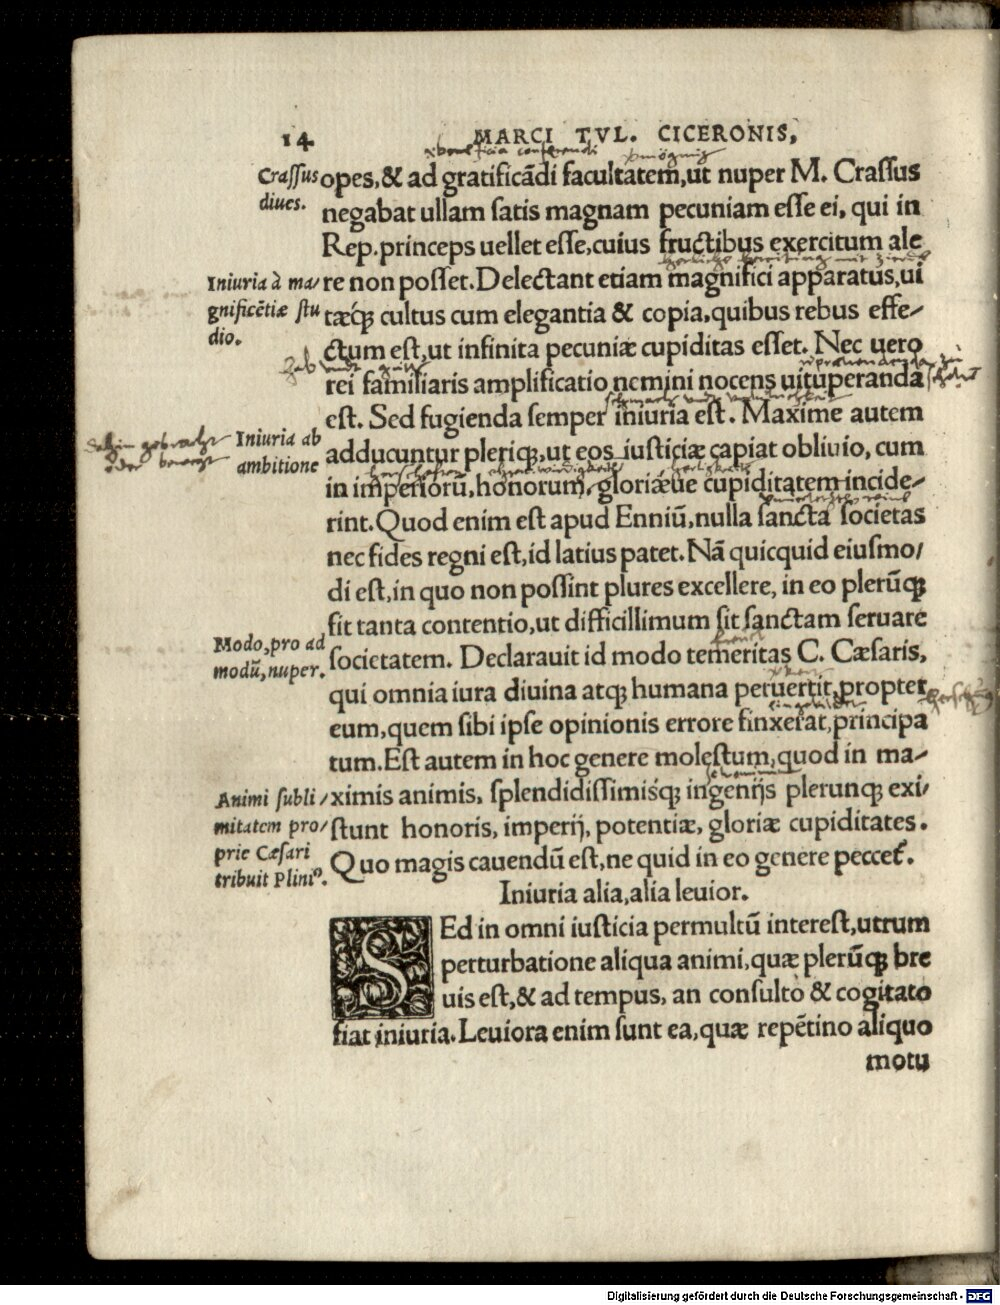 14 MARCI TVL. CICERONIS,
Craſſus
diues.
opes,& ad gratificādi facultatem,ut nuper M. Craſſus
negabat ullam ſatis magnam pecuniam eſſe ei, qui in
Rep.princeps uellet eſſe,cuius fructibus exercitum ale
Iniuria à ma/
gnificētiæ ſtu
dio.
re non poſſet.Delectant etiam magnifici apparatus,ui
tæq́; cultus cum elegantia & copia,quibus rebus effe/
ctum eſt,ut infinita pecuniæ cupiditas eſſet. Nec uero
rei familiaris amplificatio nemini nocens uituperanda
eſt. Sed fugienda ſemper iniuria eſt. Maxime autem
Iniuria ab
ambitione
adducuntur pleriq;,ut eos iuſticiæ capiat obliuio, cum
in imperiorū,honorum,gloriæue cupiditatem incide/
rint.Quod enim eſt apud Enniū,nulla ſancta ſocietas
nec fides regni eſt,id latius patet.Nā quicquid eiuſmo/
di eſt,in quo non poſſint plures excellere, in eo plerūq;
fit tanta contentio,ut difficillimum ſit ſanctam ſeruare
Modo,pro ad
modū,nuper.
ſocietatem. Declarauit id modo temeritas C. Cæſaris,
qui omnia iura diuina atq; humana peruertit,propter
eum,quem ſibi ipſe opinionis errore finxerat,principa
tum.Eſt autem in hoc genere moleſtum,quod in ma/
Animi ſubli/
mitatem pro/
prie Cæſari
tribuit Pliniꝰ.
ximis animis, ſplendidiſſimisq́; ingenijs plerunq; exi/
ſtunt honoris, imperij, potentiæ, gloriæ cupiditates.
Quo magis cauendū eſt,ne quid in eo genere peccet̃.
Iniuria alia,alia leuior.
SEd in omni iuſticia permultū intereſt,utrum
perturbatione aliqua animi,quæ plerūq; bre
uis eſt,& ad tempus, an conſultò & cogitato
fiat iniuria.Leuiora enim ſunt ea,quæ repētino aliquo
motu
Digitalisierung gefördert durch die Deutsche Forschungsgemeinschaft - DFG